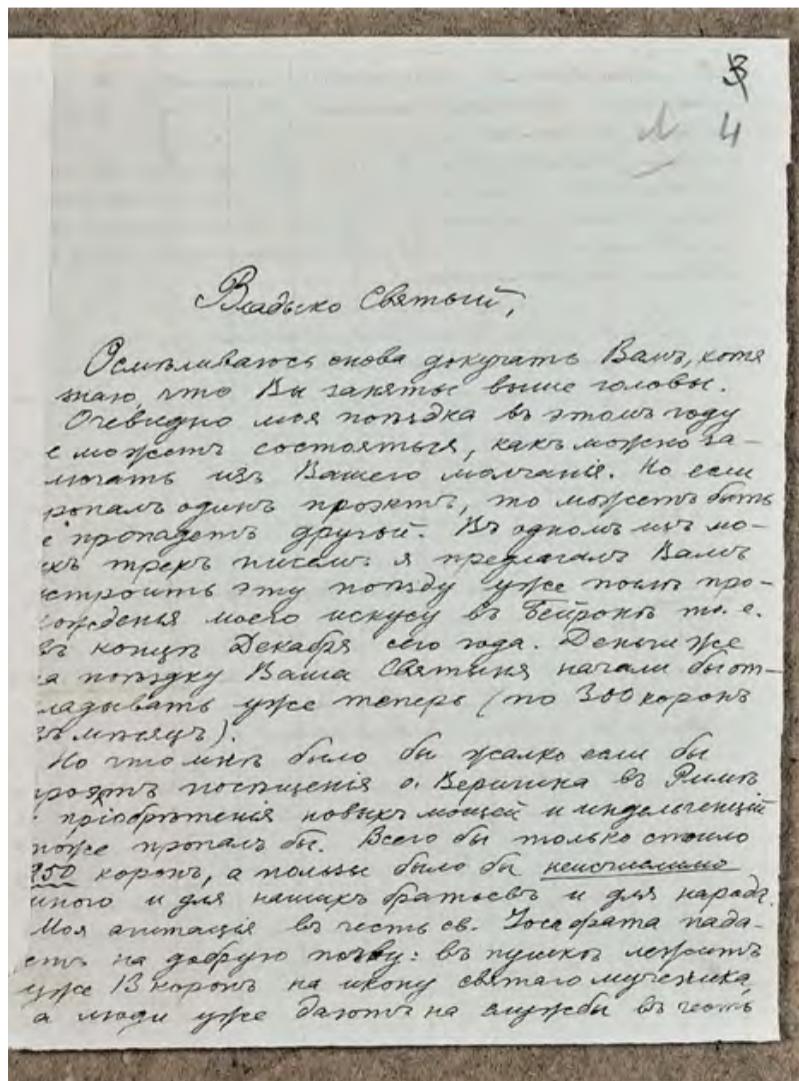 4
Владыко Святый,
Осмѣливаюсь снова докучать Вамъ, хотя
знаю, что Вы заняты выше головы.
Очевидно моя поѣздка въ этомъ году
е можетъ состояться, какъ можно за-
лючать изъ Вашего молчанія. Но если
ропалъ одинъ проэктъ, то можетъ быть
е пропадетъ другой. Въ одномъ изъ мо-
ихъ трехъ писемъ я предлагалъ Вамъ
строить эту поѣзду уже послѣ про-
ожденья моего искусу въ Бейронѣ т. е.
въ концѣ Декабря сего года. Деньги же
а поѣздку Ваша Святыня начали бы от-
ладывать уже теперь (по 300 коронъ
въ мѣсяцъ).
Но что мнѣ было бы жалко если бы
роэктъ посѣщенія о. Веригина въ Римѣ
пріобрѣтенія новыхъ мощей и индульгенцій
тоже пропалъ бы. Всего бы только стоило
950 коронъ, а пользы было бы неисчислимо
много и для нашихъ братьевъ и для народа.
Моя агитація въ честь св. Іосафата пада-
етъ на добрую почву: въ пушкѣ лежитъ
уже 13 коронъ на икону святаго мученика,
а люди уже даютъ на службы въ честь